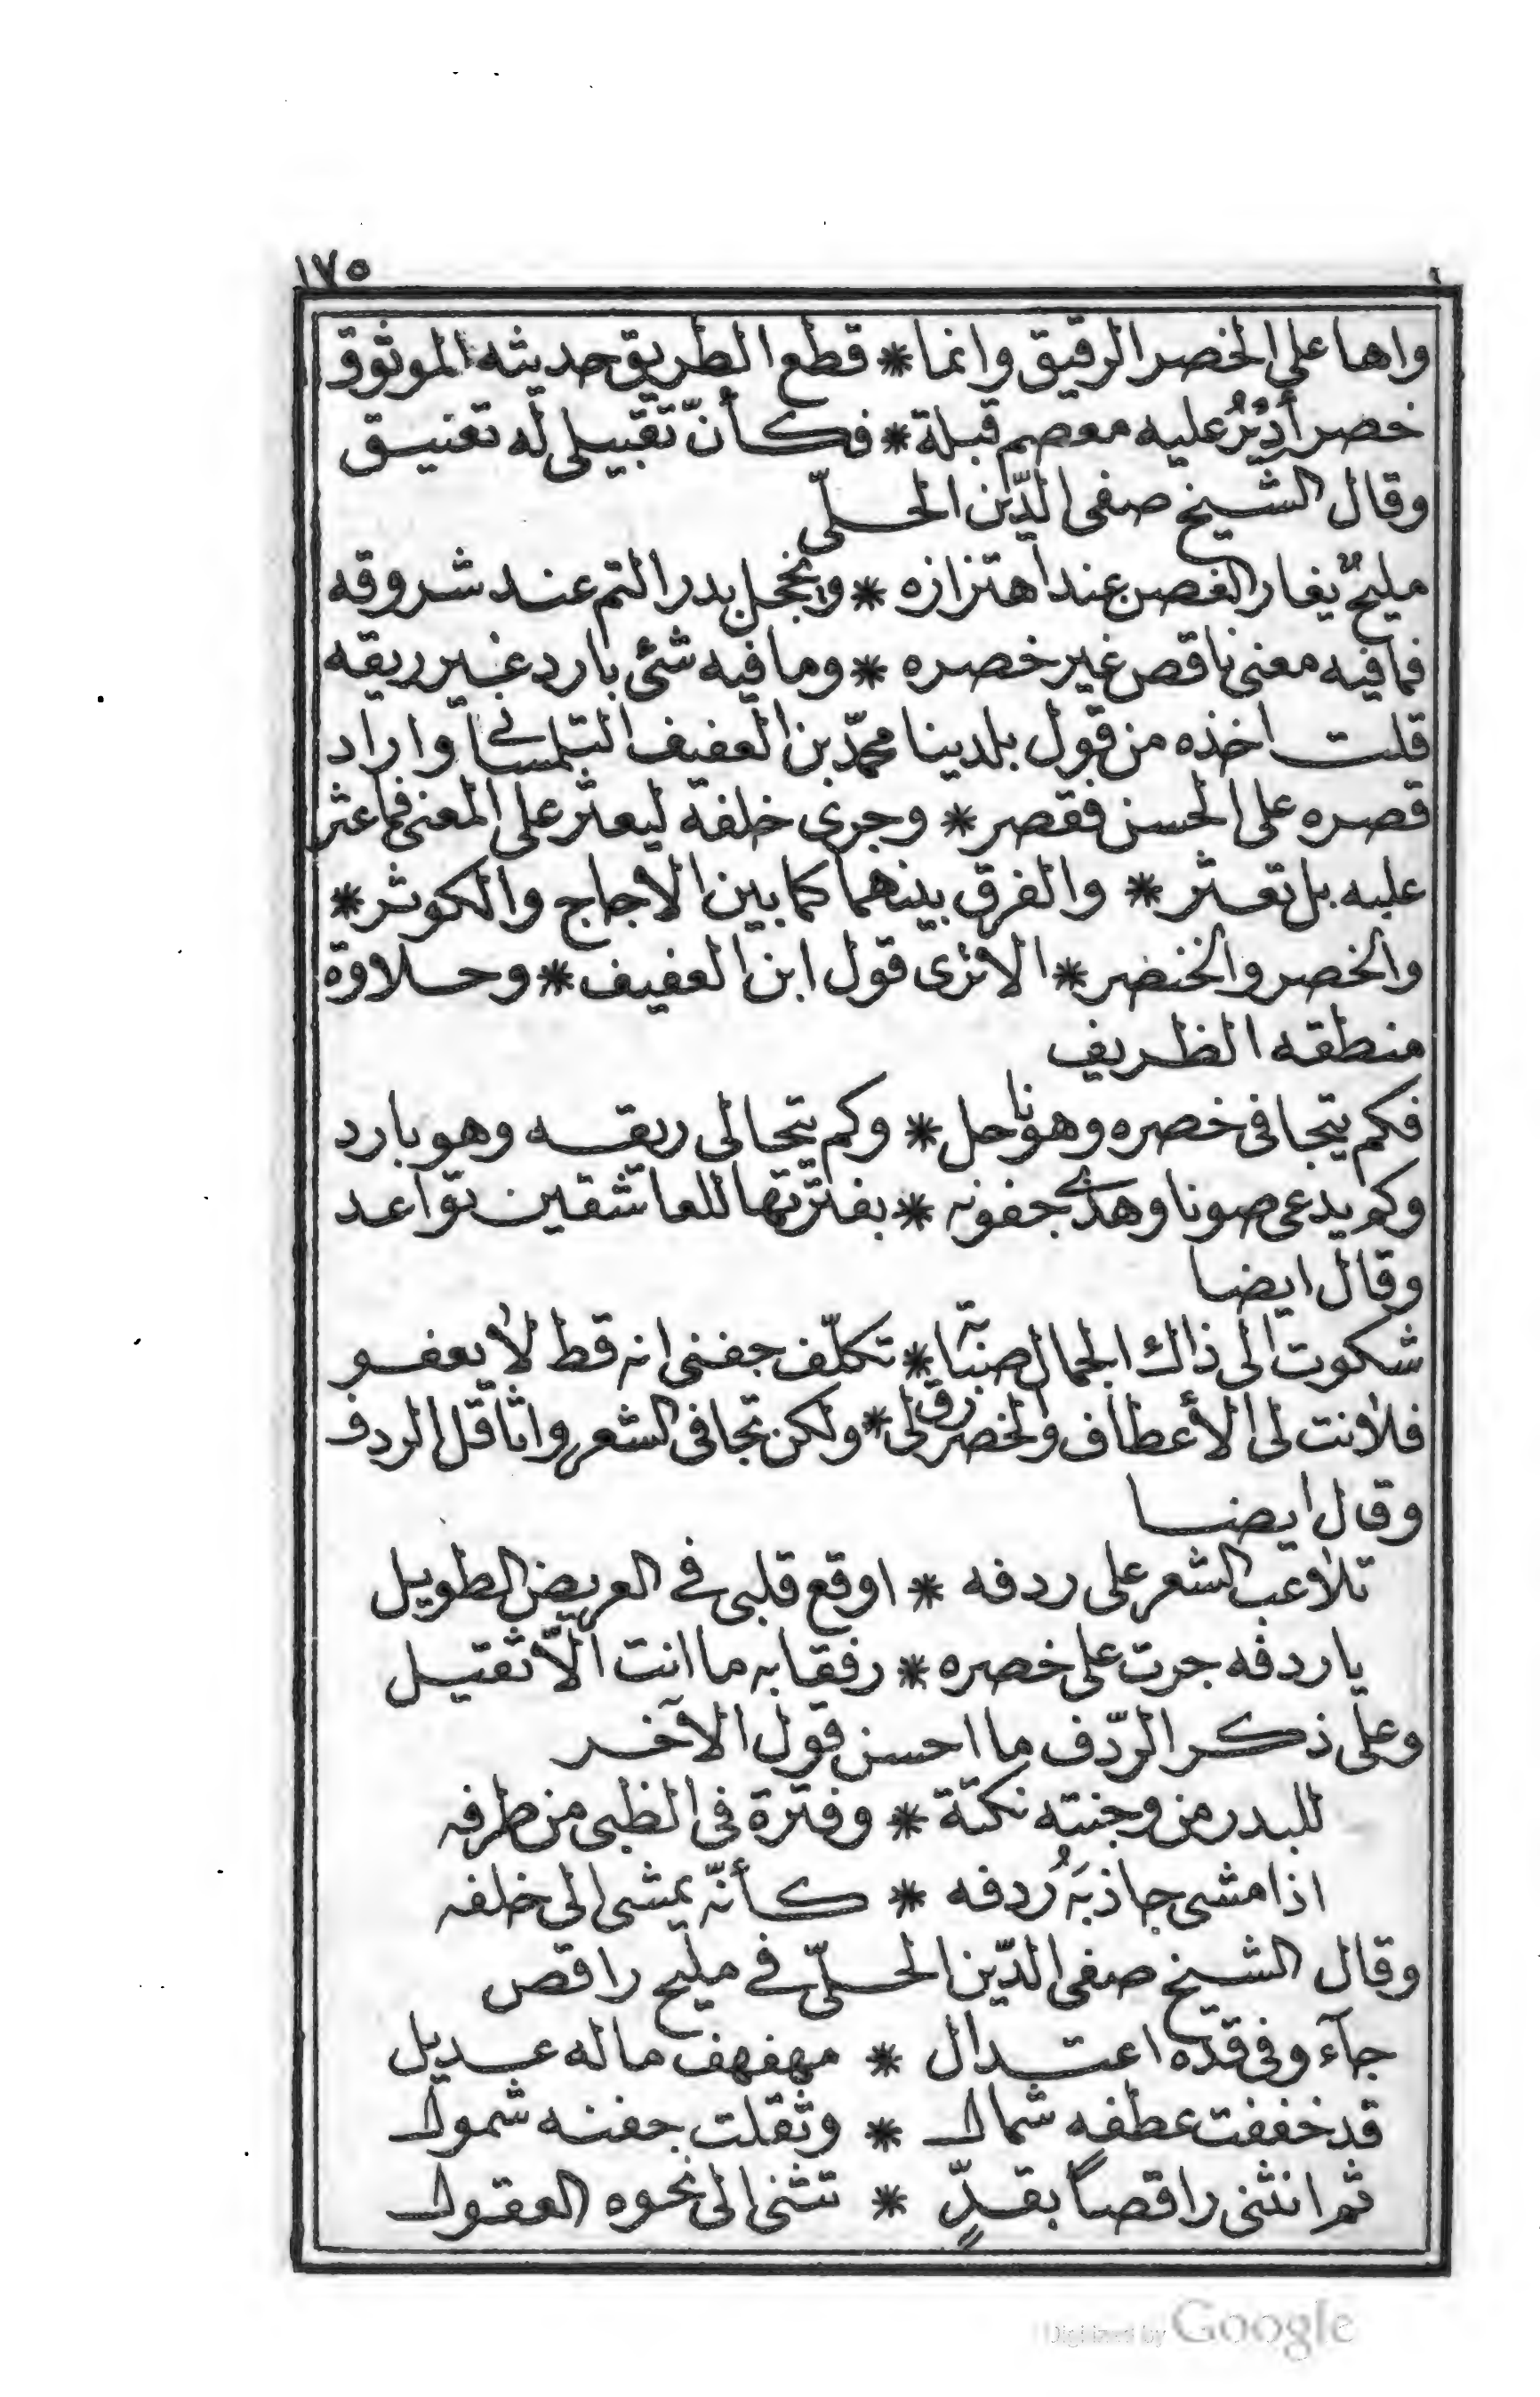 ١٧٥
واها على الخصر الرقيق وانما * قطع الطريق حديثه الموثوق
خصر أُدِيْرُ عليه معصم قبلة * فكأنّ تقبيلى له تعنيق
وقال الشيخ صفى الدّين الحلّى
مليحٌ يغار الغصن عند اهتزازه * ويخجل بدر التم عند شروقه
فما فيه معنى ناقص غير خصره * وما فيه شئ بارد غير ريقه
قلت اخذه من قول بلدينا محمّد بن العفيف التلمسانى واراد
قصره على الحسن فقصر * وجرى خلفه ليعثر على المعنى فما عثر
عليه بل تعثر * والفرق بينهما كما بين الاجاج والكوثر *
والخصر والخنصر * الا ترى قول ابن العفيف * وحلاوة
منطقه الظريف
فكم يتجافى خصره وهو ناحل * وكم يتحالى ريقه وهو بارد
وكم يدعى صونا وهذى جفونه * بفترتها للعاشقين تواعد
وقال ايضا
شكوت الى ذاك الجمال صبابة * تكلّف جفنى انه قط لا يغفو
فلانت لى الأعطاف والخصر رق لى * ولكن تجافى الشعر واثاقل الردف
وقال ايضا
تلاعب الشعر على ردفه * اوقع قلبى فى العريض الطويل
يا ردفه جرت على خصره * رفقا به ما انت الّا ثقيل
وعلى ذكر الرّدف ما احسن قول الآخر
للبدر من وجنته نكتة * وفترة فى الظبى من طرفه
اذا مشى جاذبَهُ ردفه * كأنّه يمشى الى خلفه
وقال الشيخ صفى الدّين الحلّى فى مليح راقص
جآء وفى قدّه اعتدال * مهفهف ما له عديل
قد خففت عطفه شمال * وثقلت جفنه شمول
ثم انثنى راقصاً بقدٍّ * تثنى الى نحوه العقول
Digitized by Google